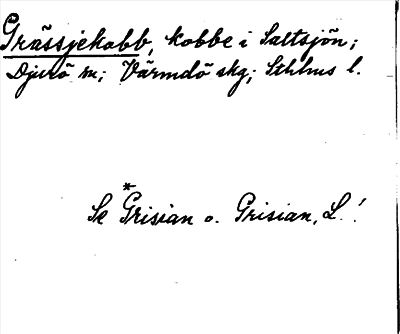 Grässjekobb, kobbe i Saltsjön;
Djurö sn; Värmdö skg; Sthlms l.
Se *Grisian o. Grisian, L. !